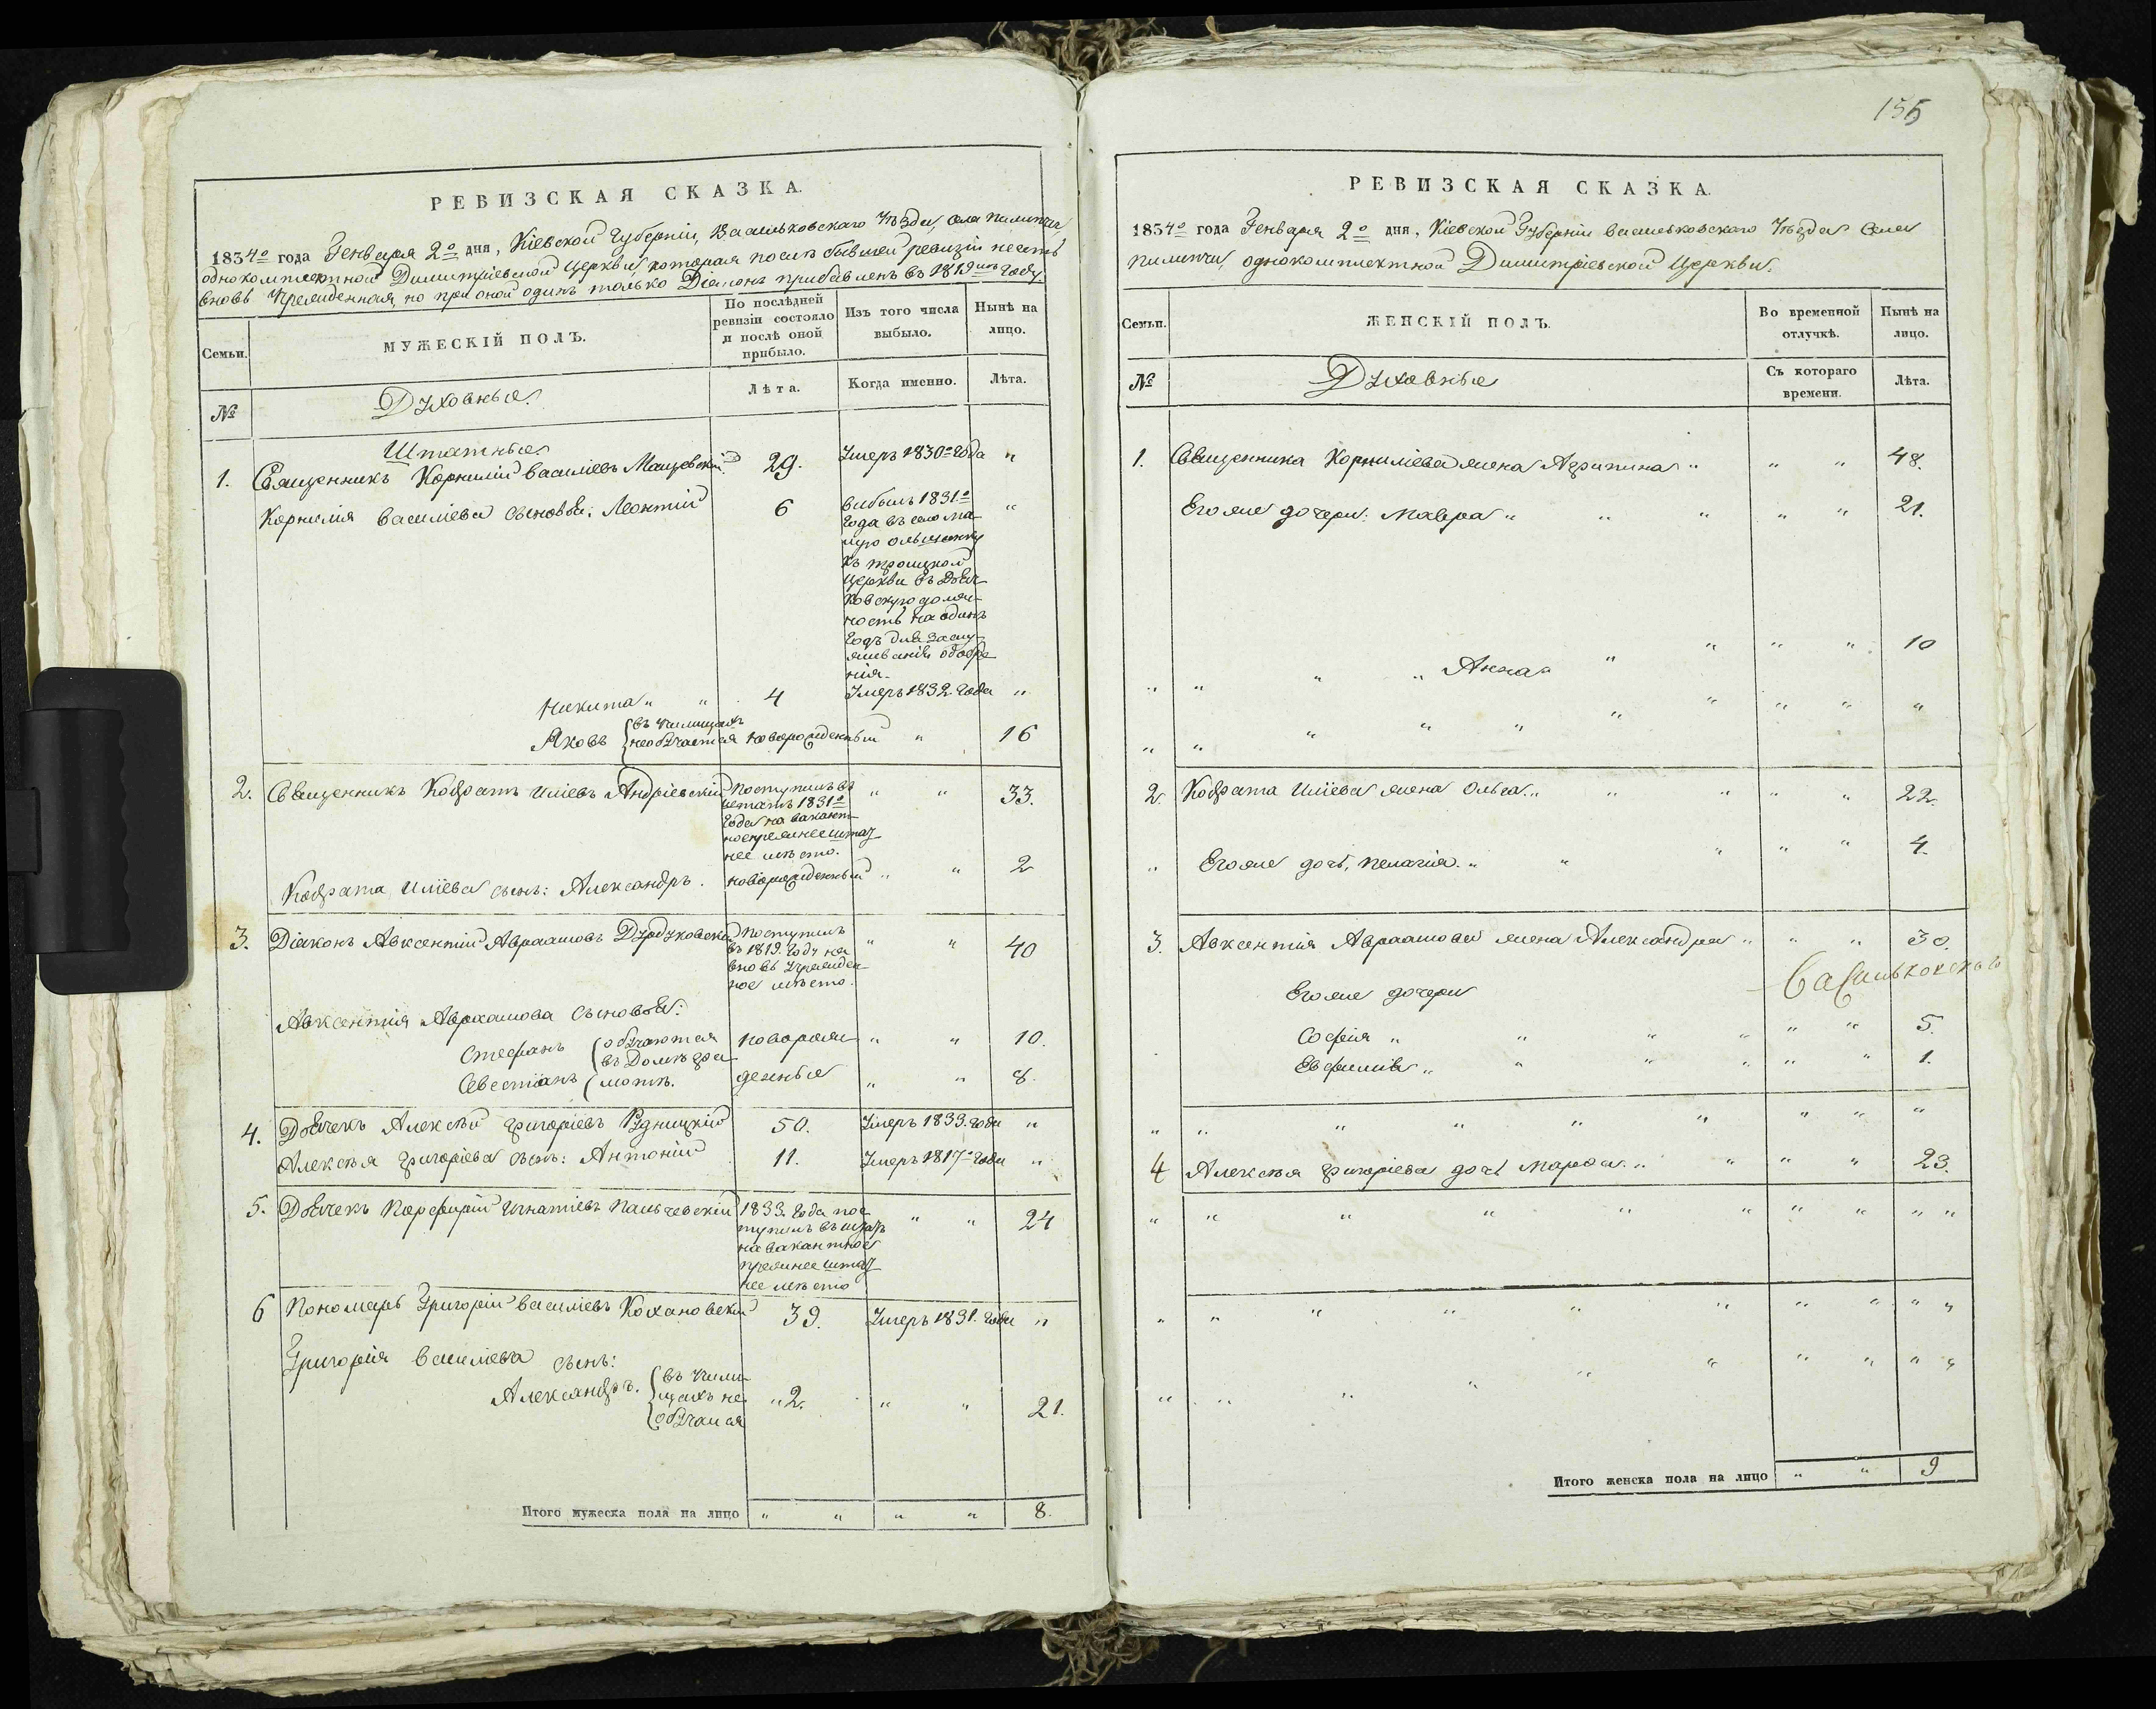 РЕВИЗСКАЯ СКАЗКА.
1834го года Генваря 2го дня, Кіевской Губерніи, Васильковскаго Уѣзда, Села Пилипчи
однокомплектной Димитріевской Церкви, которая послѣ бывшей ревизіи не есть
вновь Учрежденная, но при оной одинъ только Діаконъ прибавленъ въ 1819мъ Году.
Семьи.
МУЖЕСКІЙ ПОЛЪ.
По послѣдней ревизіи состояло и послѣ оной прибыло.
Изъ того числа выбыло.
Нынѣ на лицо.
№
Духовные.
Лѣта.
Когда именно.
Лѣта.
Штатные
1. Священникъ Корнилій Василіевъ Мацѣевскій 29. Умеръ 1830го Года "
Корнилія Василіева сыновья: Леонтій 6 "
выбылъ 1831го
Года въ село Ма-
лую Ольшанку
къ троицкой
Церкви въ Дьяч-
ковскую долж-
ность на одинъ
Годъ для заслу-
живанія одобре-
нія.
Никита " " 4 Умеръ 1832 Года "
Яковъ {въ Училищахъ
не обучается новорожденный " 16
2. Священникъ Кодратъ Иліевъ Андріевскій " " 33.
Поступилъ въ
штатъ 1831го
Года на вакант-
ное прежнее штат-
нее мѣсто.
Кодрата Иліева сынъ: Александръ. новорожденный " " 2
3. Діаконъ Авксентій Авраамовъ Дзюдзковскій " " 40
Поступилъ
въ 1819. Году на
вновь Учрежден-
ное мѣсто.
Авксентія Авраамова сыновья:
Стефанъ {обучаются новорож- " " 10.
въ Домѣ гра-
Севестіанъ {мотѣ. денные " " 8.
4. Дьячекъ Алексѣй Григоріевъ Рудницкій 50. Умеръ 1833. Года "
Алексѣя Григоріева сынъ: Антоній 11. Умеръ 1817го Года "
5. Дьячекъ Порфирій Игнатіевъ Пальчевскій " " 24
1833. Года пос-
тупилъ въ штатъ
на вакантное
прежнее штат-
нее мѣсто
6 Пономарь Григорій Василіевъ Кохановскій 39. Умеръ 1831. Года "
Григорія Василіева сынъ:
Александръ. {въ Учили-
щахъ не "2. " " 21.
обучался
Итого мужеска пола на лицо " " " " 8.
155
РЕВИЗСКАЯ СКАЗКА.
1834го года Генваря 2го дня, Кіевской Губерніи Васильковскаго Уѣзда Села
Пилипчи, однокомплектной Димитріевской Церкви.
Семьи.
ЖЕНСКІЙ ПОЛЪ.
Во временной отлучкѣ.
Нынѣ на лицо.
№
Духовные
Съ котораго времени.
Лѣта.
1. Священника Корниліева жена Агрипина " " " 48.
Его же дочери: Мавра " " " " " 21.
" " " " Анна " " " " " 10
" " " " " " " " " "
2. Кодрата Иліева жена Ольга. " " " " " 22.
" Его же дочь, Пелагія. " " " " " 4.
3. Авксентія Авраамова жена Александра " " " 30.
Васильковскаго
Его же дочери
Софія " " " " " " 5.
Евфимія " " " " " " 1.
" " " " " " " " "
4 Алексѣя Григоріева дочь Марфа. " " " " 23.
" " " " " " " " " "
" " " " " " " " " "
" " " " " " " " " "
Итого женска пола на лицо " " 9